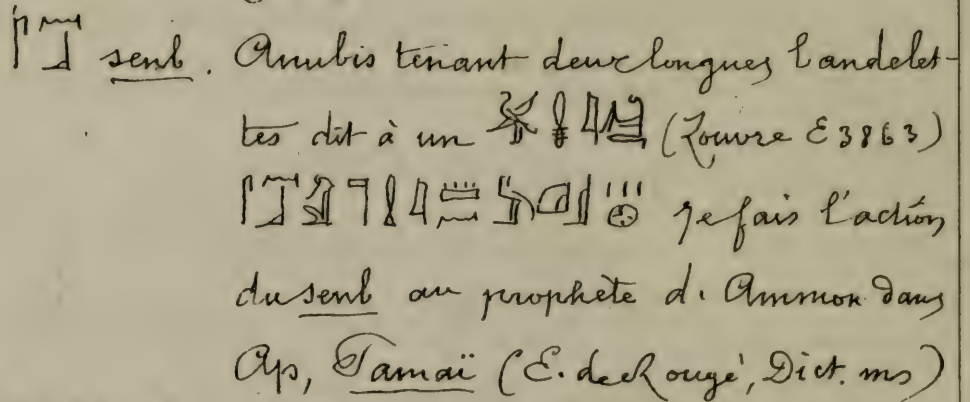 senb. Anubis tenant deux longues bandelet-
tes dit à un (Louvre E 3863)
je fais l'action
du senb au prophète d'Ammon dans
Ap, Tamaï (E. de Rougé, Dict. ms)